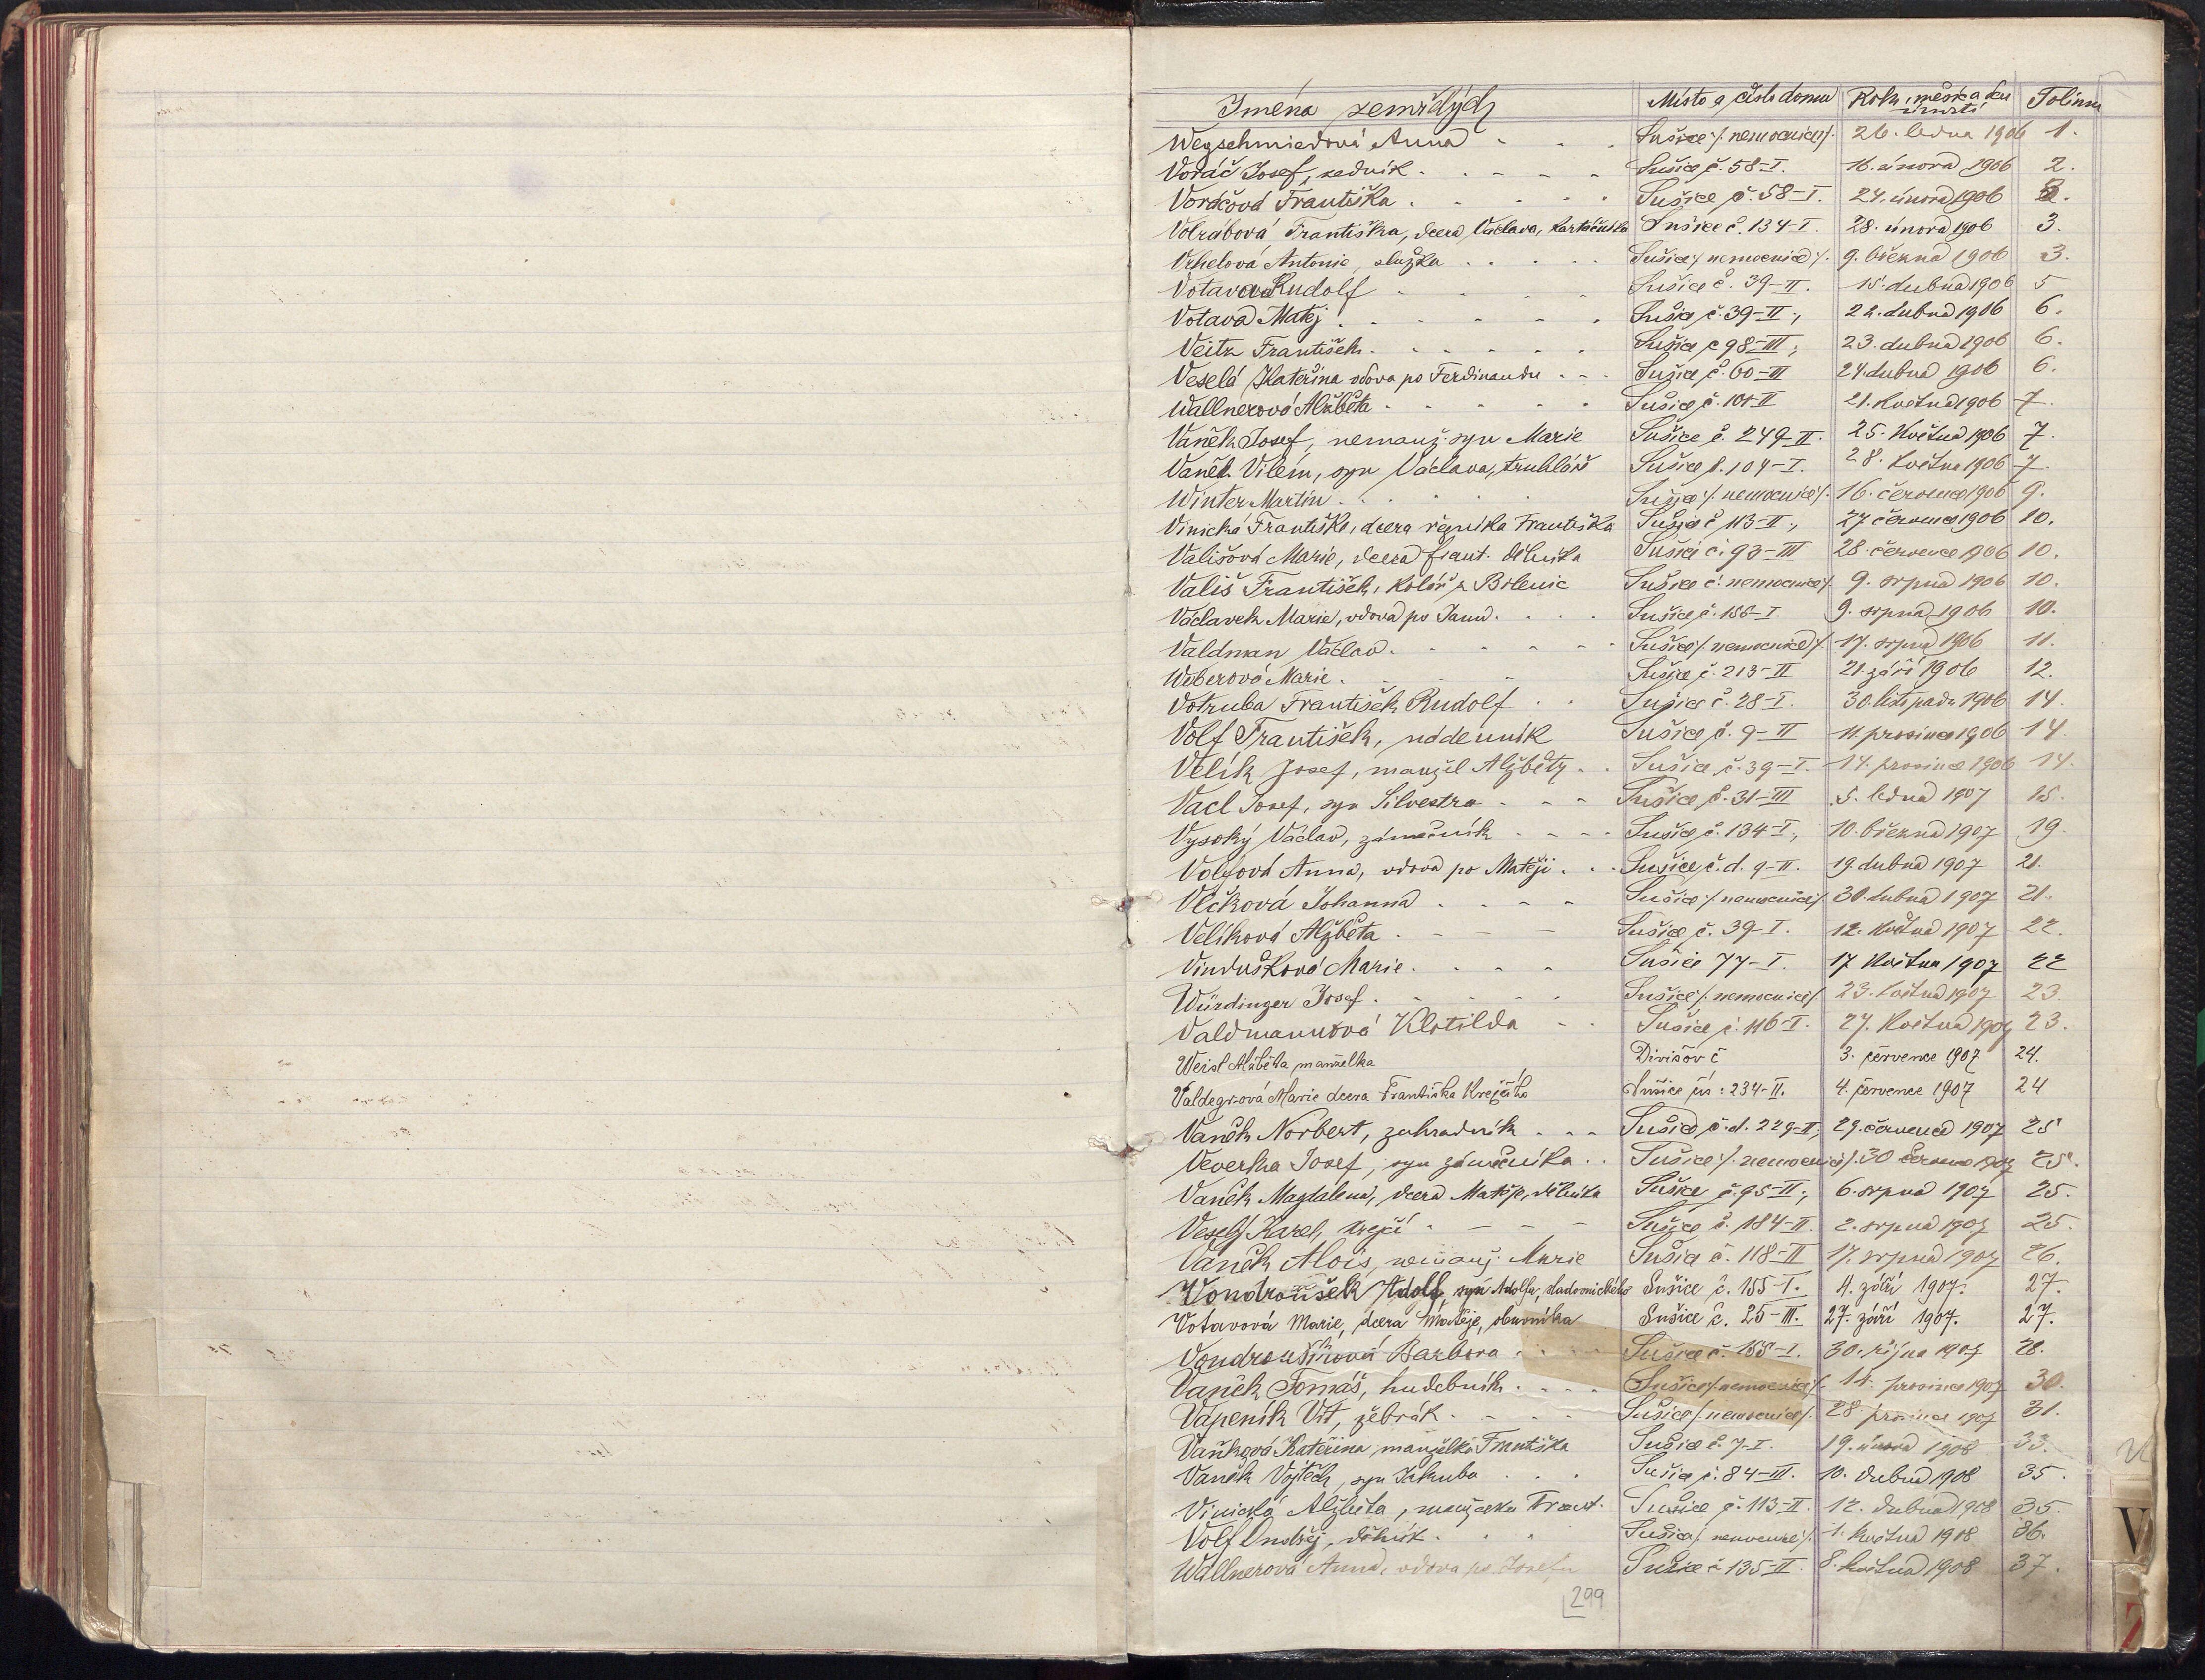 Jména zemřelých Místo a číslo domu Rok, měsíc a den úmrtí Folium
Wegschmiedová Anna Sušice /: nemocnice :/ 26. ledna 1906 1.
Voráč Josef, zedník Sušice č. 58-I. 16. února 1906 2.
Voráčová Františka Sušice č. 58-I. 24. února 1906 3.
Volrábová Františka, dcera Václava, kartáčníka Sušice č. 134-I 28. února 1906 3.
Vrhelová Antonie, služka Sušice /: nemocnice :/ 9. března 1906 3.
Votava Rudolf Sušice č. 39-II. 15. dubna 1906 5
Votava Matěj Sušice č. 39-II., 22. dubna 1906 6.
Veitz František Sušice č 98-III, 23. dubna 1906 6.
Veselá Kateřina vdova po Ferdinandu Sušice č. 60-III 24. dubna 1906 6.
Wallnerová Alžběta Sušice č. 101-II 21. května 1906 7.
Vaněk Josef, nemanž. syn Marie Sušice č. 249-II. 25. května 1906 7.
Vaněk Vilém, syn Václava, truhláře Sušice č. 104-I. 28. května 1906 7.
Winter Martin Sušice /: nemocnice :/ 16. července 1906 9.
Vinická Františka, dcera řezníka Františka Sušice č 113-II., 27 července 1906 10.
Vališová Marie, dcera frant. dělníka Sušice č. 93-III 28. července 1906 10.
Vališ František, kolář z Brlenic Sušice č: nemocnice :/ 9. srpna 1906 10.
Václavek Marie, vdova po Janu Sušice č. 186-I. 9. srpna 1906 10.
Valdman Václav Sušice /: nemocnice :/ 17. srpna 1906 11.
Weberová Marie Sušice č. 213-II 21. září 1906 12.
Votruba František Rudolf Sušice č. 28-I. 30. listopadu 1906 14.
Volf František, nádenník Sušice č. 9-II 11. prosince 1906 14.
Velík Josef, manžel Alžběty Sušice č. 39-I. 14. prosince 1906 14.
Vacl Josef, syn Silvestra Sušice č. 31-III 5. ledna 1907 15.
Vysoký Václav, zámečník Sušice č. 134-I, 10. března 1907 19.
Volfová Anna, vdova po Matěji Sušice č.d. 9-II. 19. dubna 1907 21.
Vlčková Johanna Sušice /: nemocnice :/ 30. dubna 1907 21.
Velíková Alžběta Sušice č. 39-I. 12. května 1907 22.
Vindušková Marie Sušice 77-I. 17 května 1907 22
Würdinger Josef Sušice /: nemocnice :/ 23. května 1907 23.
Valdmannová Klotilda Sušice č. 116-I. 27. května 1907 23.
Weisl Alžběta manželka Divišov č 3. července 1907 24.
Valdegrová Marie dcera Františka Krejčího Sušice čís: 234-II. 4. července 1907 24
Vaněk Norbert, zahradník Sušice č.d. 229-II, 29. července 1907 25
Veverka Josef, syn zámečníka Sušice /: nemocnice :/ 30 července 1907 25.
Vaněk Magdalena, dcera Matěje, dělníka Sušice č. 95-II, 6. srpna 1907 25.
Veselý Karel, krejčí Sušice č. 184-II. 2. srpna 1907 25.
Vaněk Alois, nemanž. Marie Sušice č. 118-II 17. srpna 1907 26.
Vondroušek Adolf, syn Adolfa, sladovnického Sušice č. 155-I. 4. září 1907. 27.
Votavová Marie, dcera Matěje, Sušice č. 25-III. 27. září 1907. 27.
Vondroušková Barbora Sušice č. 155-I. 30. října 1907 28.
Vaněk Tomáš, hudebník Sušice /: nemocnice :/ 14. prosince 1907 30.
Vápeník Vít, žebrák Sušice /: nemocnice :/ 28. prosince 1907 31.
Vaňková Kateřina manželka Františka Sušice č. 7-I. 19. února 1908 33.
Vaněk Vojtěch, syn Jakuba Sušice č. 84-III. 10. dubna 1908 35.
Vinická Alžběta, manželka Frant. Sušice č. 113-II. 12. dubna 1908 35.
Volf Ondřej, dělník Sušice /: nemocnice :/ 1. května 1908 36.
Wallnerová Anna, vdova po Josefu Sušice č 135-II. 8. května 1908 37.
299
V
Z